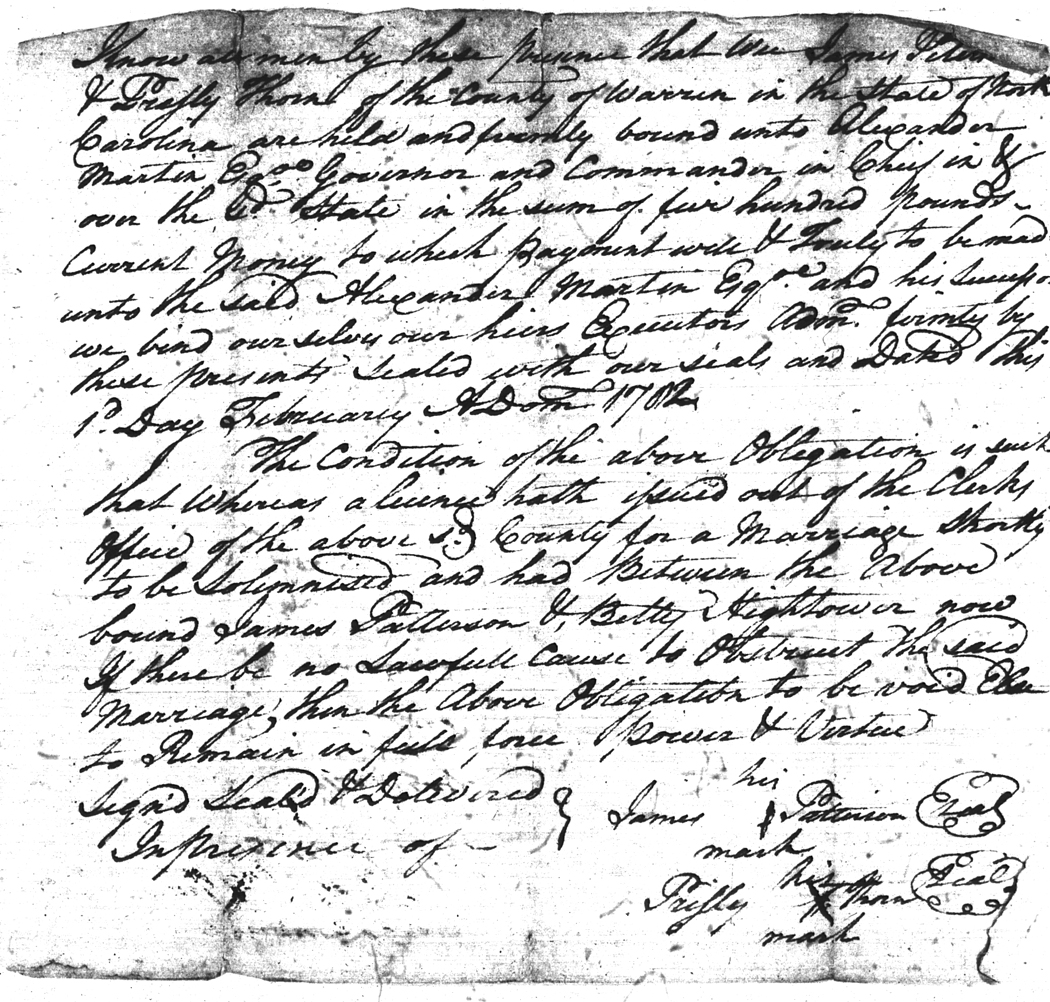 Know all men by these presence that Wee James
& Prissly Thorn of the County of Warren in the State of North
Carolina are held and firmly bound unto Alexander
Martin Esqr. Governor and Commander in Chief in &
over the sd. State in the sum of five hundred Pounds
Current Money to which payment will & Truly to be mad
unto the said Alexander Martin Esqre. and his
we bind ourselves our heirs Executors Admr. firmly by
these presents Sealed with our seals and Dated this
1st. Day February ADom 1782
The Condition of the above Obligation is such
that Whereas a licence hath issued out of the Clerks
Office of the above sd. County for a Marriage Shortly
to be Solemnised and had Between the Above
bound James Patterson & Betty Hightower now
If there be no Lawfull Cause to Obstruct the said
Marriage, then the Above Obligation to be void Else
to Remain in full force power & Virtue
Sign'd Seal'd & Delivered
In presence of
his
James Patterson Seal
mark
his
Prissly Thorn Seal
mark